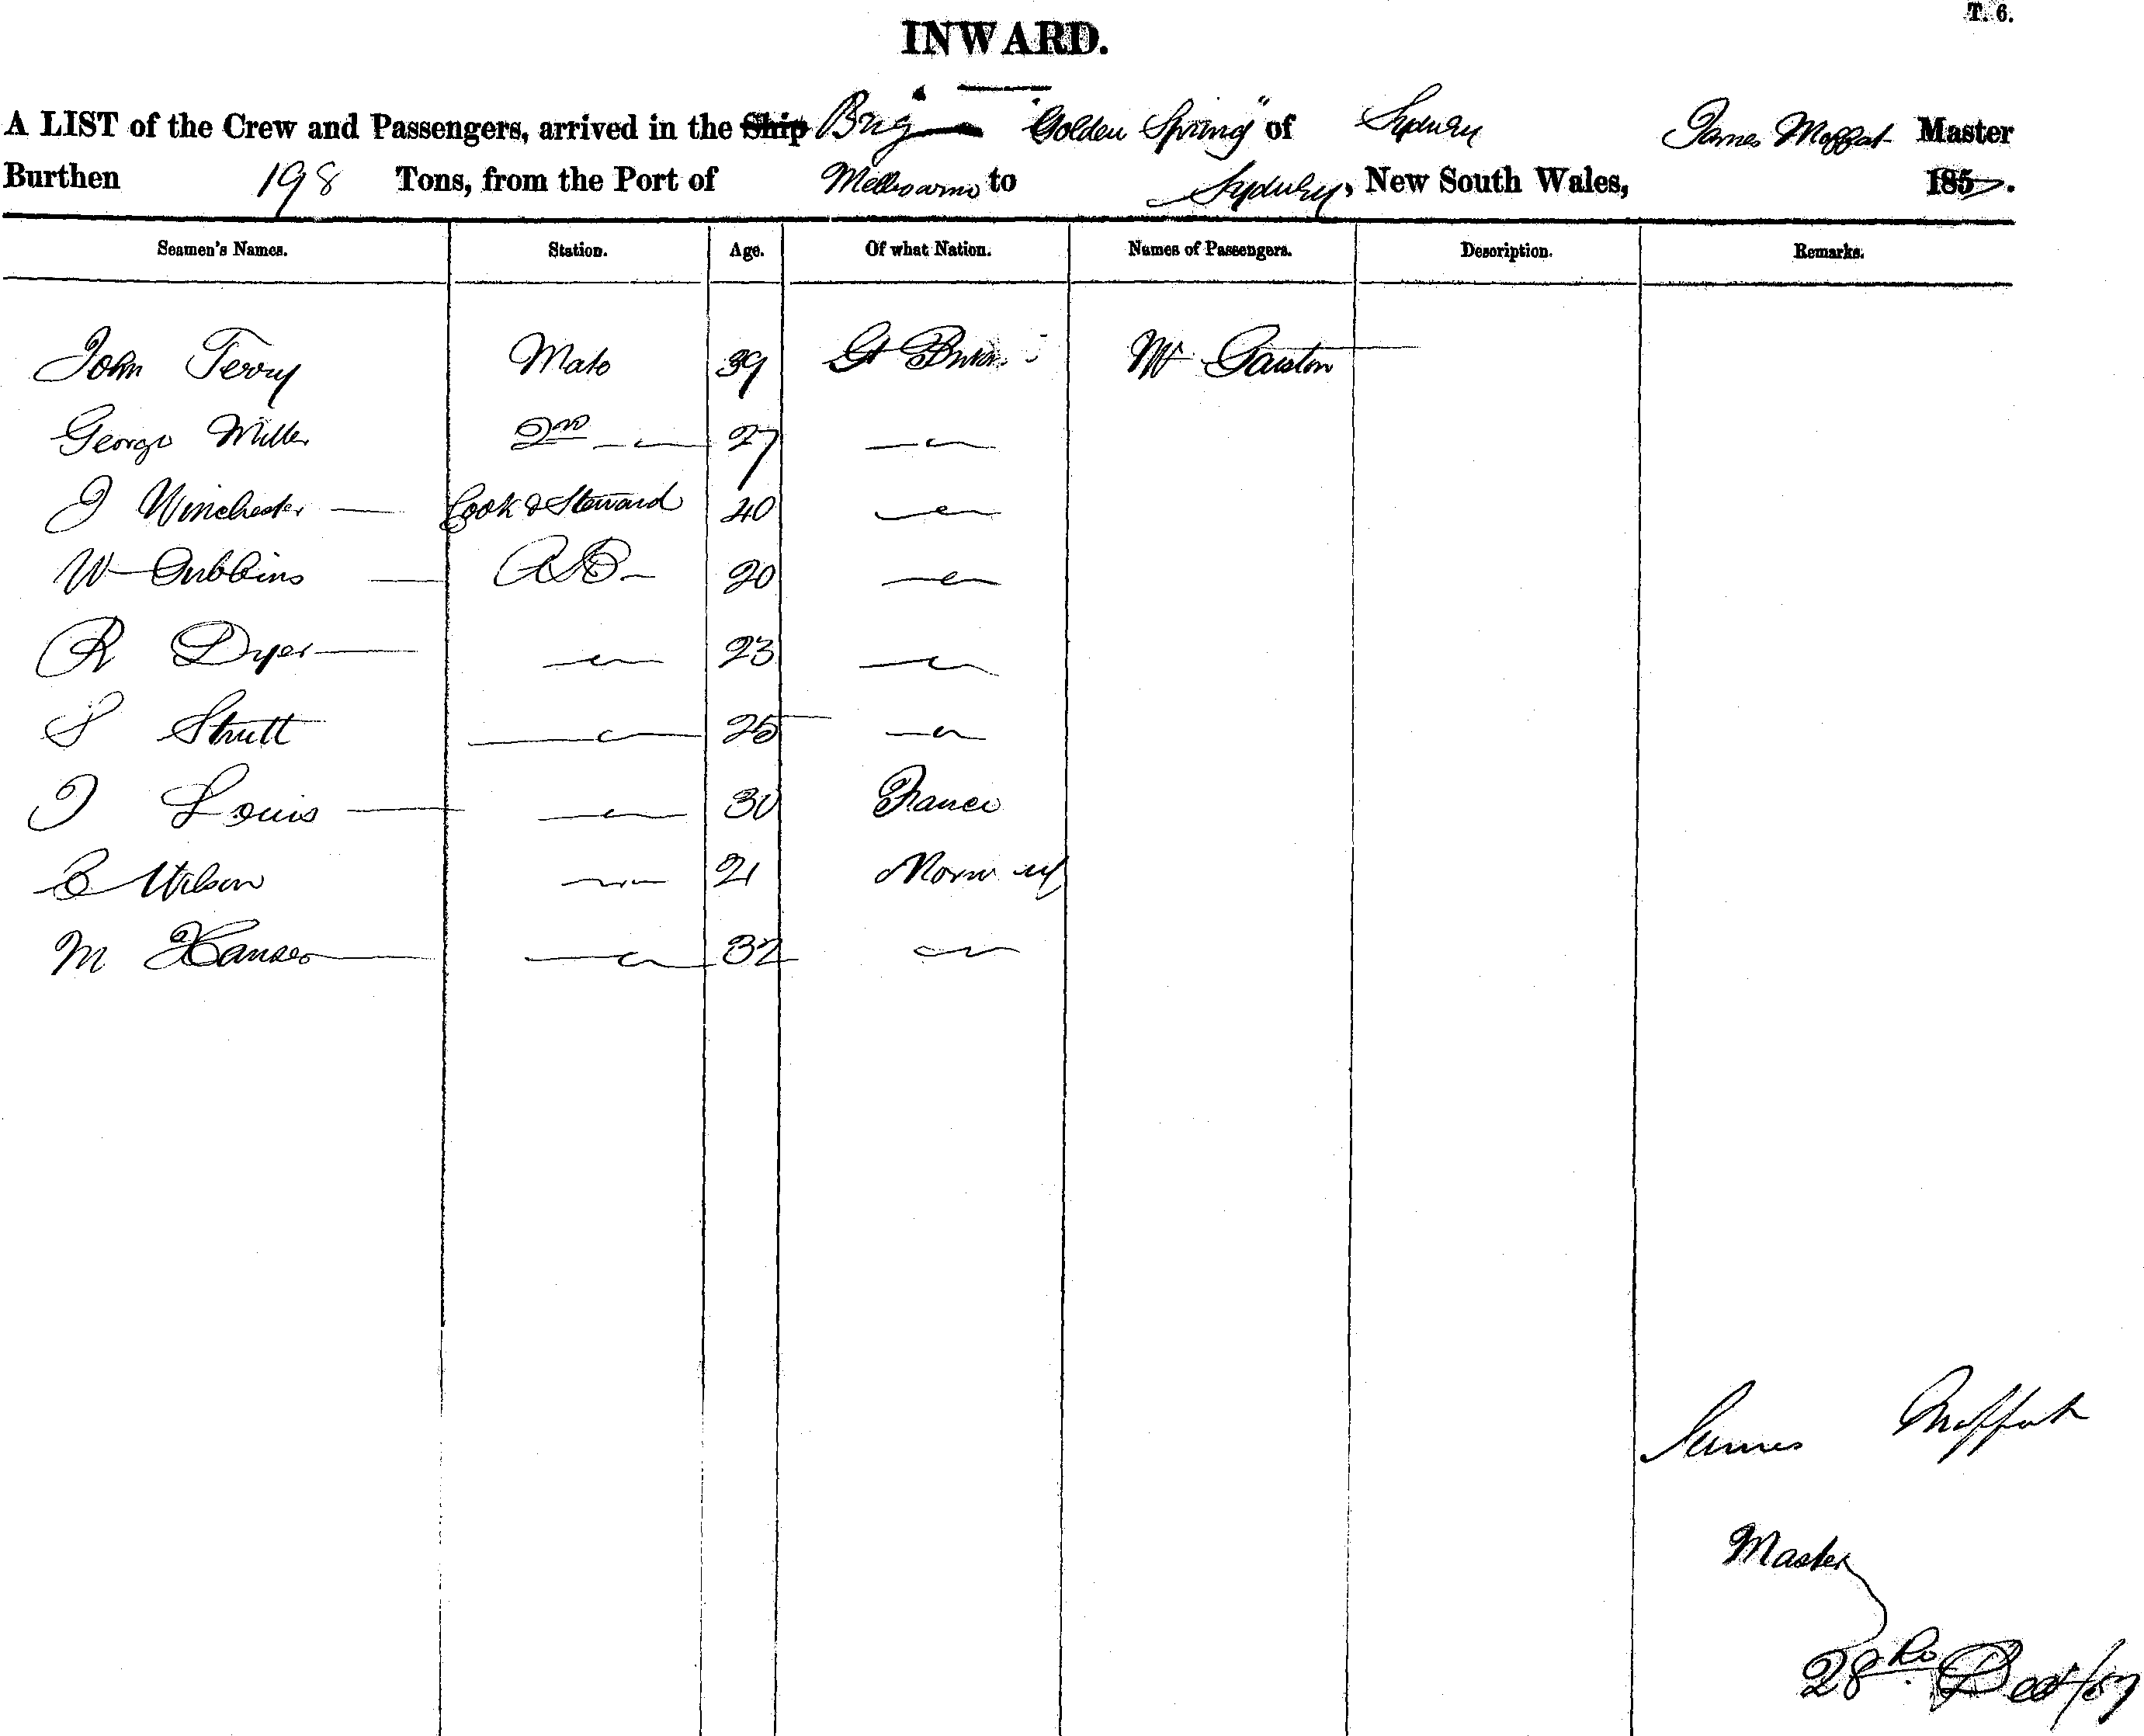 T. 6.
INWARD.
A LIST of the Crew and Passengers, arrived in the Ship Brig "Golden Spring" of Sydney James Moffat Master
Burthen 198 Tons, from the Port of Melbourne to Sydney, New South Wales, 1857.
Seamen's Names. Station. Age. Of what Nation. Names of Passengers. Description. Remarks.
John Terry Mate 39 Gt Britain Mr
George Miller 2nd 27
J Winchester Cook & Steward 40
W Gubbins AB 20
R Dyer 23
S Strutt 25
J Louis 30 France
C Wilson 21 Norway
M Hansen 32
James Moffat
Master
28 Dec/57